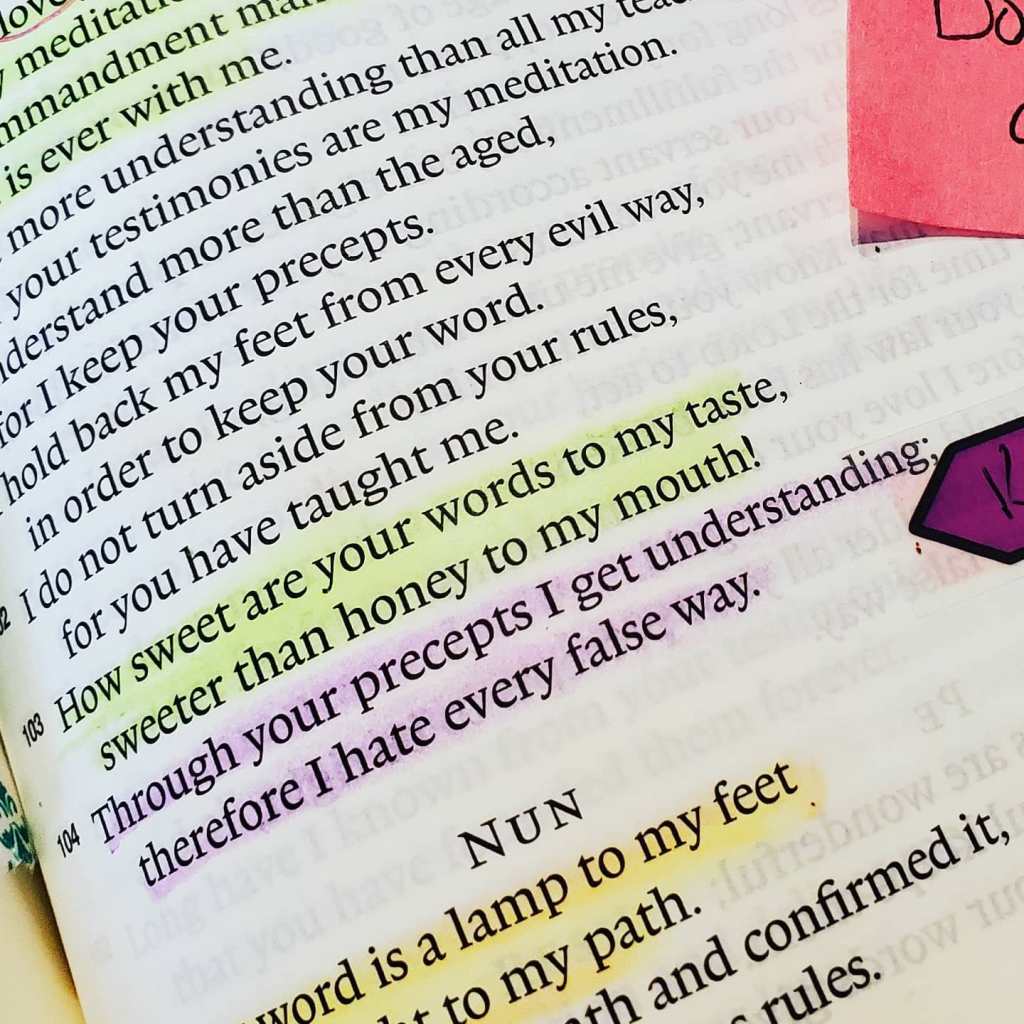 love
meditatio
mmandment mak
is ever with me.
more understanding than all my teac
your testimonies are my meditation.
derstand more than the aged,
for I keep your precepts.
hold back my feet from every evil way,
in order to keep your word.
I do not turn aside from your rules,
for you have taught me.
103 How sweet are your words to my taste,
sweeter than honey to my mouth!
104 Through your precepts I get understanding;
therefore I hate every false way.
NUN
word is a lamp to my feet
to my path.
th and confirmed it,
rules.
Do